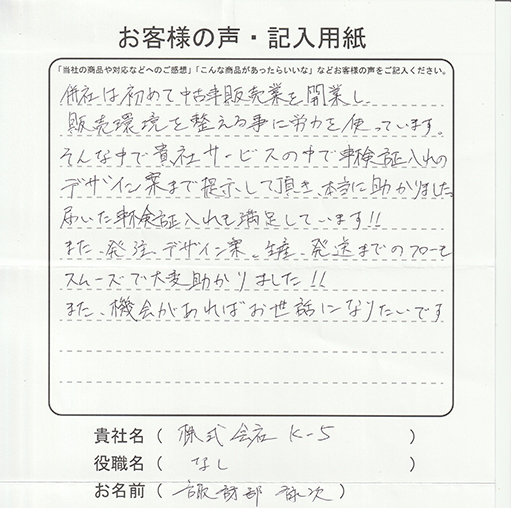 お客様の声・記入用紙
「当社の商品や対応などへのご感想」「こんな商品があったらいいな」などお客様の声をご記入ください。
併社は初めて中古車販売業を開業し、
販売環境を整える事に労力を使っています。
そんな中で貴社サービスの中で車検証入れの
デザイン案まで提示して頂き、本当に助かりました。
届いた車検証入れも満足しています!!
また、発注、デザイン案、生産、発送までのフローも
スムーズで大変助かりました!!
また、機会があればお世話になりたいです
貴社名( 株式会社 K-5 )
役職名( なし )
お名前( 諏訪部 次 )